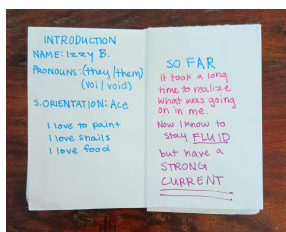 INTRODUCTION
NAME: Izzy B.
PRONOUNS: (they/them)
(voi/void)
S.ORIENTATION: Ace
I love to paint
I love snails
I love food
SO FAR
it took a long
time to realize
what was going
on in me.
Now I know to
stay FLUID
but have a
STRONG
CURRENT